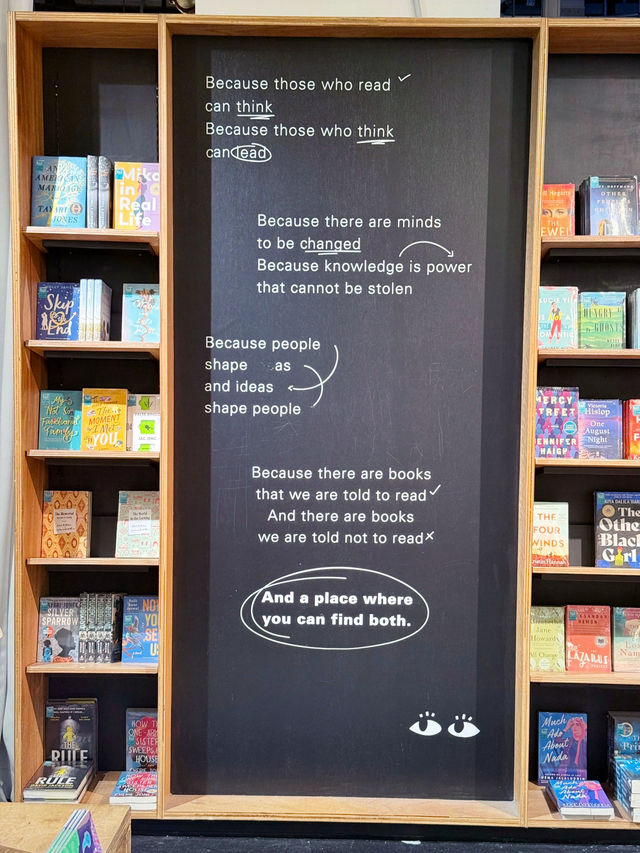 Because those who read
can think
Because those who think
can lead
Because there are minds
to be changed
Because knowledge is power
that cannot be stolen
Because people
shape as
and ideas
shape people
Because there are books
that we are told to read
And there are books
we are told not to read
And a place where
you can find both.
AN
AMERICAN
MARRIAGE
TAYARI
JONES
Mika
in
Real
Life
Skip
to the
End
My
Not So
Functional
Family
The
MOMENT
I Met
YOU
SILVER
SPARROW
NO
YOU
SEE
US
THE
RULE
RULE
HOW THE
ONE-ARMED
SISTER
SWEEPS HER
HOUSE
THE
JEWEL
OTHER
PEOPLE
HUNGRY
GHOSTS
MERCY
STREET
JENNIFER
HAIGH
Victoria
Hislop
One
August
Night
THE
FOUR
WINDS
The
Other
Black
Girl
Elizabeth
Jane
Howard
All Change
LAZARUS
Much
Ado
About
Nada
Much
Ado About
Nada